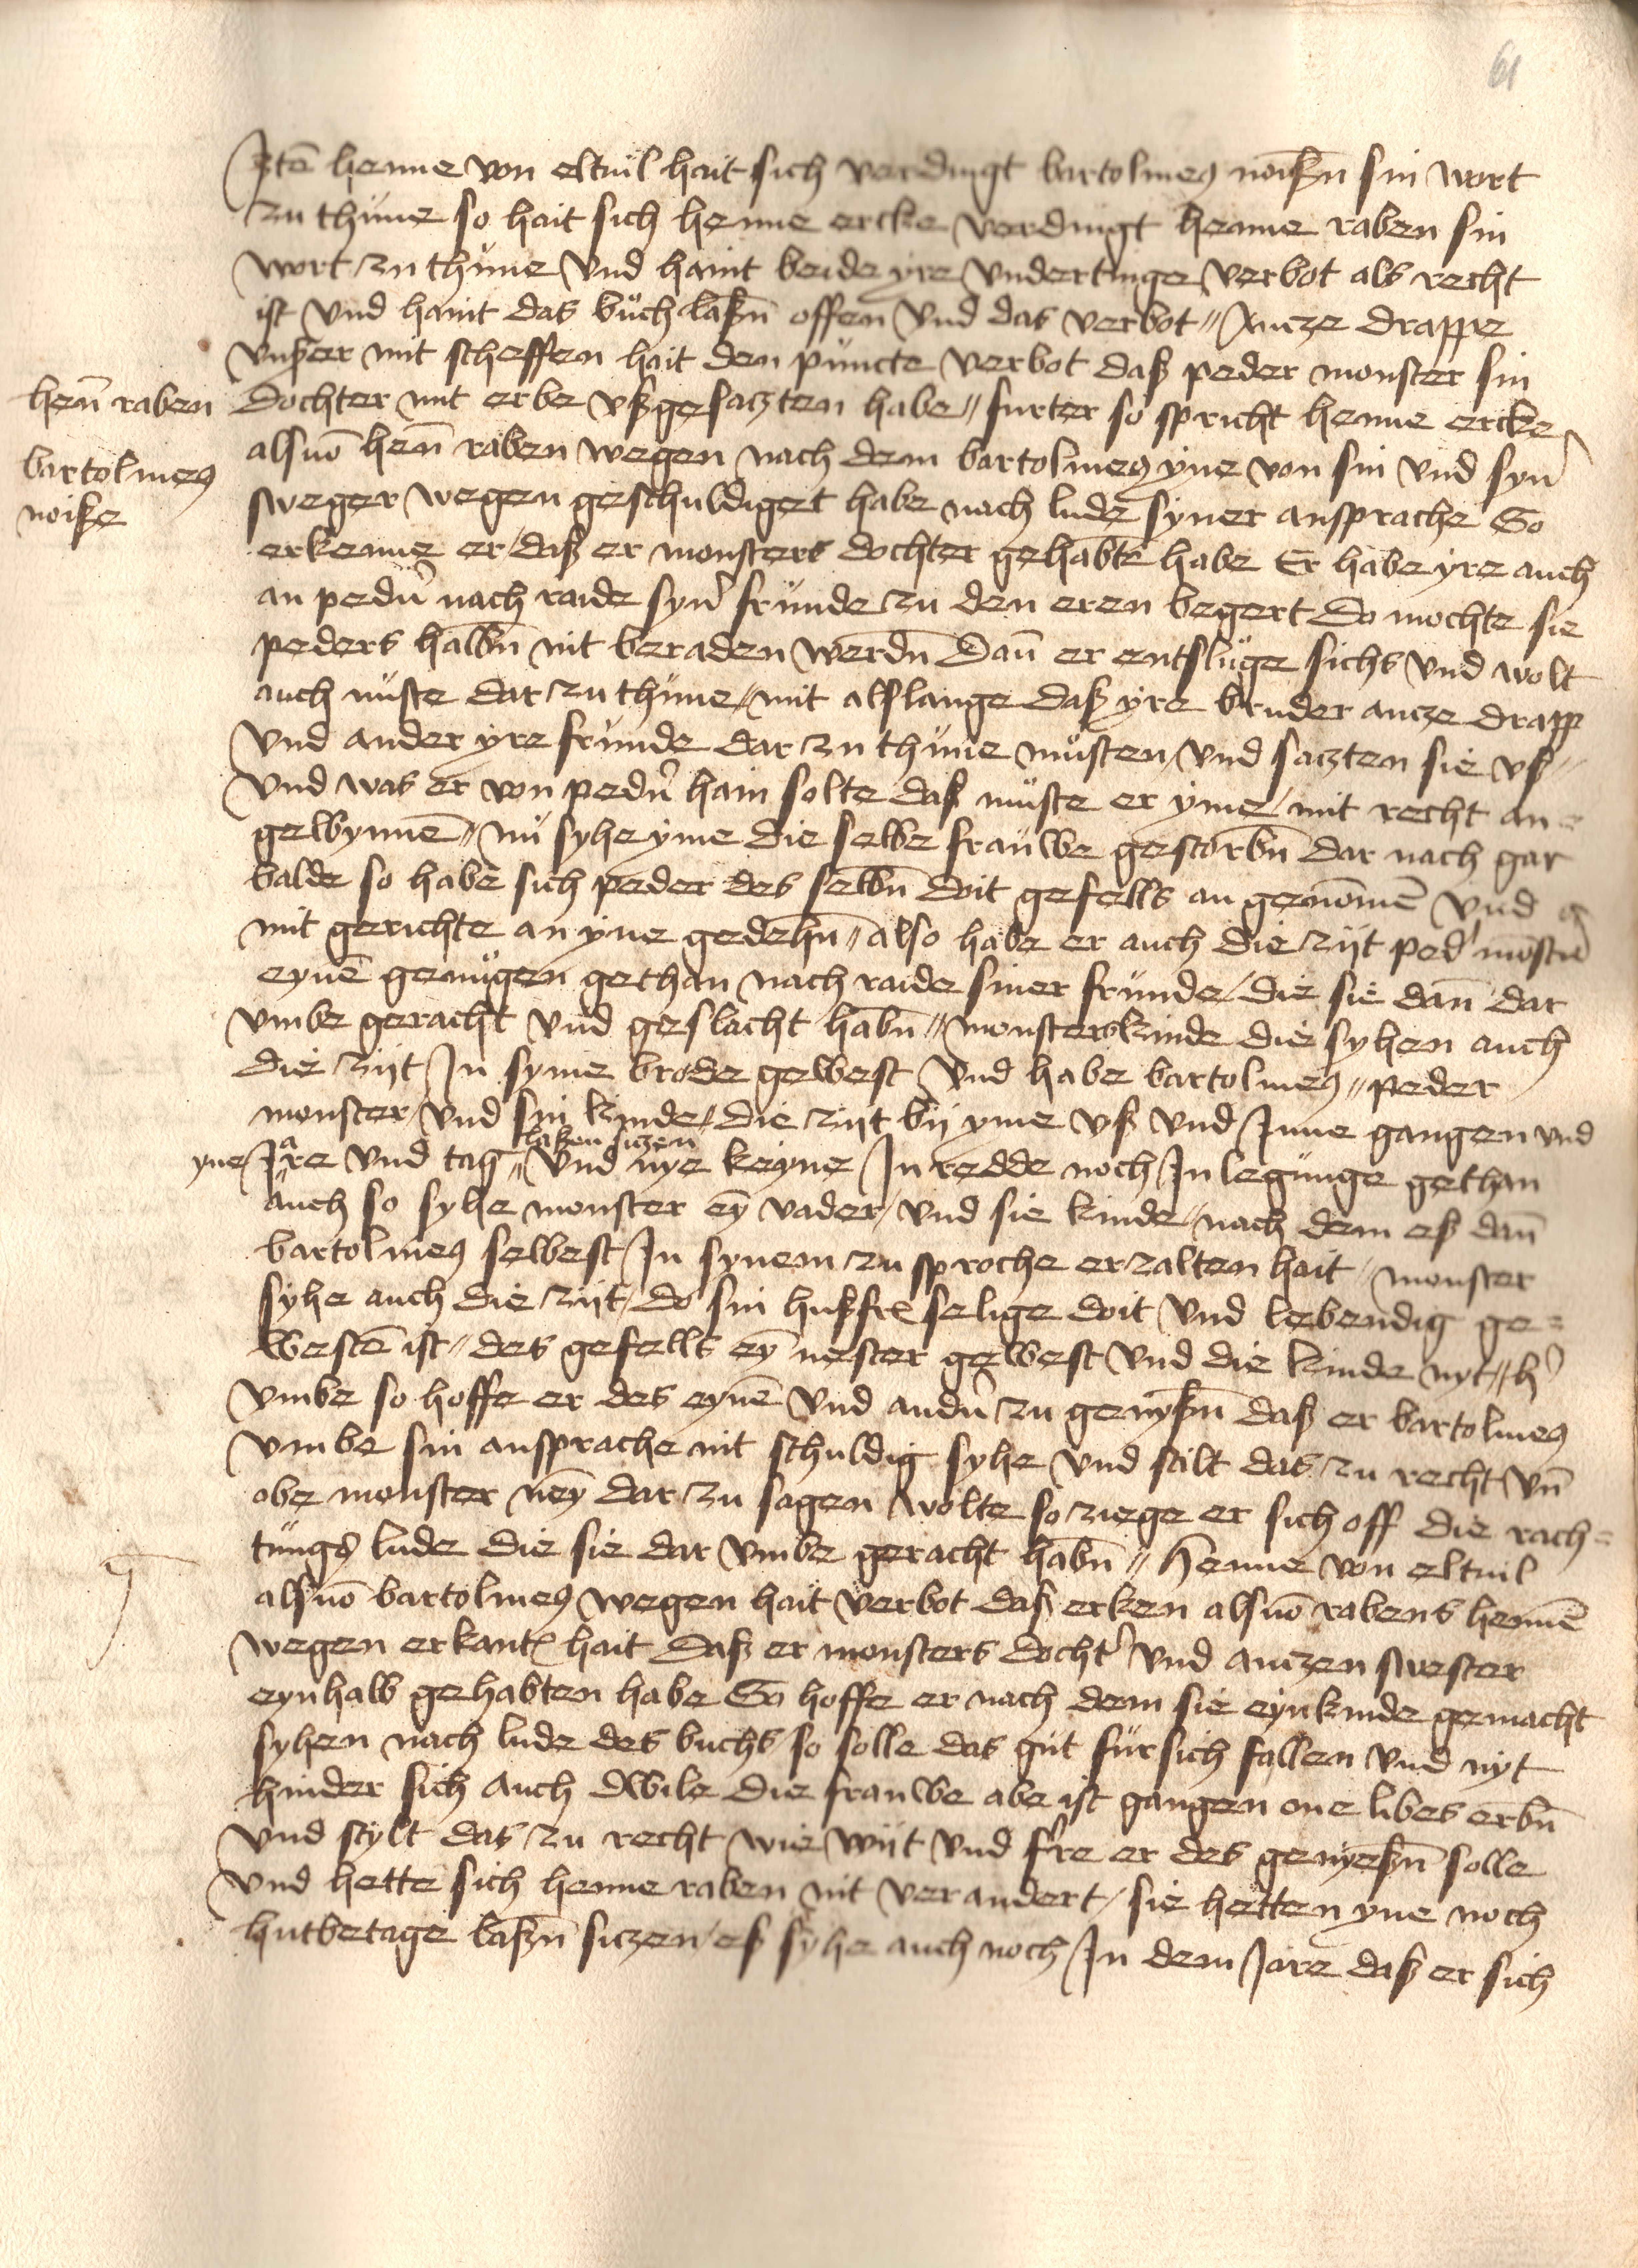 61
Jtē henne von eltuil hait sich verdingt bartolmeꝰ noißn̄ sin wort
zu thüne so hait sich henne ercke verdingt henne raben sin
wort zu thüne vnd haint beide yre vndertinge verbot als recht
ist vnd haint das büch laißn̄ offen vnd das verbot // Ancze drappe
vnßer mit scheffen hait den puncte verbot daß peder monster sin
henn̄ raben
dochter mit erbe vßgesaczten habe // furter so spricht henne ercke
bartolmeꝰ
noiße
alsuō henn̄ raben wegen nach dem bartolmeꝰ yne von sin vnd syn̄
sweger wegen geschuldiget habe nach lude syner ansprache So
erkenne er daß er monsters dochter gehabte habe Er habe yre auch
an pedn̄ nach raide syn̄ fründe zu den eren begert do mochte sie
peders halbn̄ nit beraden werdn̄ dan̄ er entslüge sichs vnd wolt
auch nüste dar zu thüne // mit alslange daß yre bruder ancze drapp
vnd ander yre fründe dar zu thüne müsten vnd saczten sie vß //
vnd was er von pedn̄ hain solte daß müste er yme mit recht an
gewynnē // nü syhe yme die selbe frauwe gestorbn̄ dar nach gar
balde so habe sich peder des selbn̄ doit gefells an genōmē vnd
mit gerichte an yne gedehn̄ // also habe er auch die zijt ped' monstn̄
eynē genügen gethan nach raide siner fründe / die sie dan̄ dar
vmbe geracht vnd geslacht habn̄ // monsterskinde die syhen auch
die zijt Jn syme brode gewest vnd habe bartolmeꝰ // peder
monster vnd sin kinde / die zijt bij yme vß vnd Jnne gangen vnd
laßen siczen
yne Jare vnd tag // vnd nye keyne Jn redde noch Jn legünge gethan
auch so syhe monster eȳ vader / vnd sie kinde // nach dem eß dan̄
bartolmeꝰ selbest Jn synem zu sproche erzalten hait // monster
syhe auch die zijt / do sin hußfr̄ selige doit vnd lebendig ge=
westē ist // des gefells eȳ nester gewest vnd die kinde nyt // h'
vmbe so hoffe er des eynē vnd andn̄ zu genyßn̄ daß er bartolmeꝰ
vmbe sin ansprache nit schuldig syhe vnd stilt das zu recht vn̄
obe monster neȳ dar zu sagen wolte so ziege er sich off die rach=
tüngs lude die sie dar vmbe geracht habn̄ // Henne von eltuil
alsuō bartolmeꝰ wegen hait verbot daß erken alsuō rabens hennē
wegen erkant hait daß er monsters docht' vnd anczen swester
eynhalb gehabten habe So hoffe er nach dem sie eynkinde gemacht
syhen nach lude des buchs so solle das güt für sich fallen vnd nyt
hinder sich auch dwile die frauwe abe ist gangen one libes erbn̄
vnd stylt das zu recht wie wijt vnd f're er des genyeßn̄ solle
vnd hette sich henne raben nit verandert / sie hetten yne noch
hutbetage laißn̄ siczen / eß syhe auch noch Jn dem Jare daß er sich